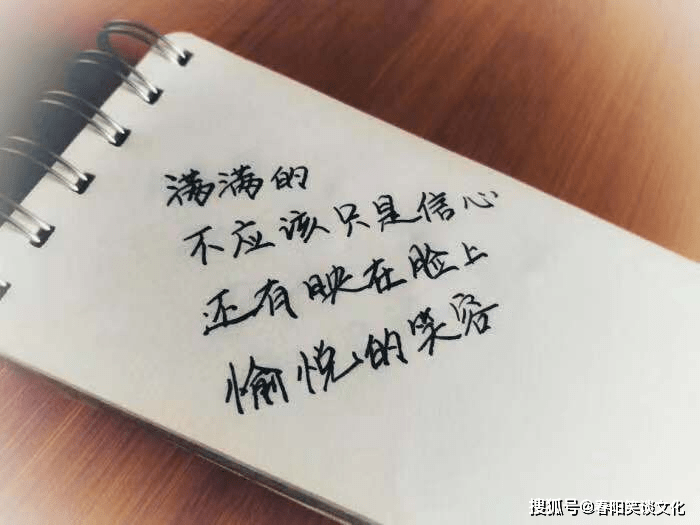 满满的
不应该只是信心
还有映在脸上
愉悦的笑容
搜狐号@春阳笑谈文化